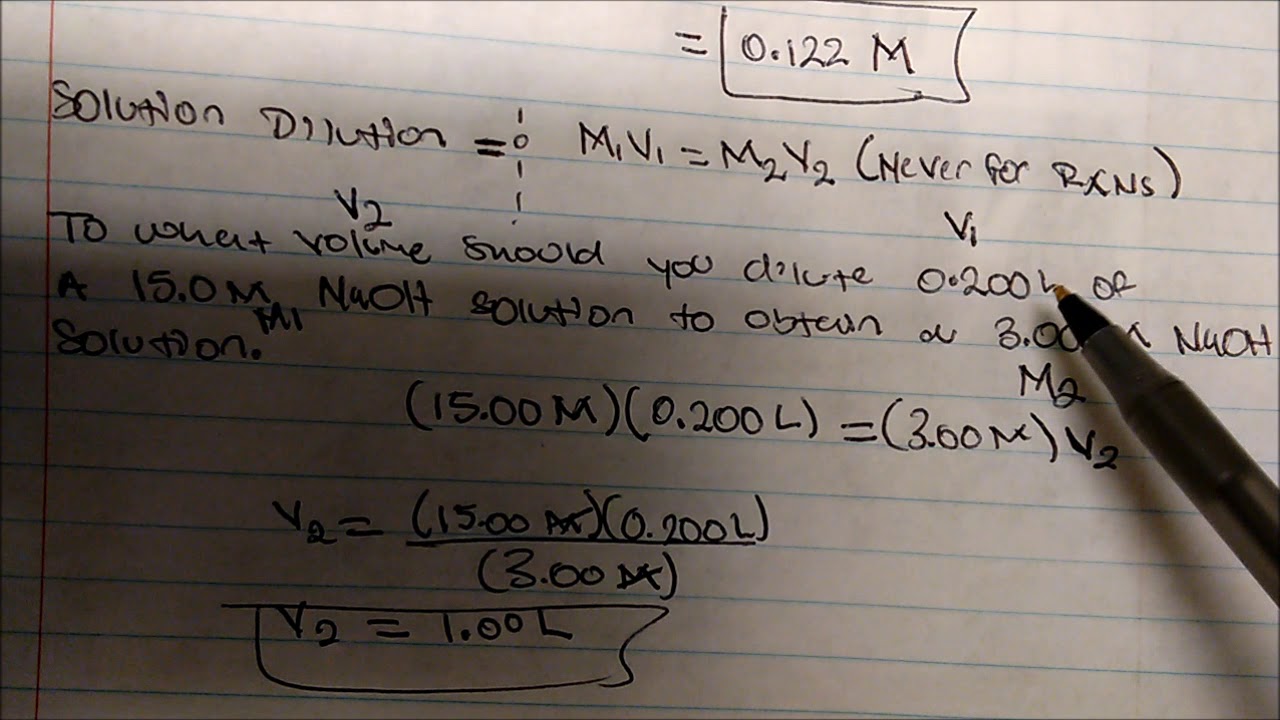 = 0.122 M
Solution Dilution = M₁V₁ = M₂V₂ (Never for RXNs)
V₂
V₁
To what volume should you dilute 0.200L of
A 15.0 M NaOH solution to obtain a 3.00 NaOH
M₁
Solution.
M₂
(15.00 M)(0.200 L) = (3.00 M) V₂
V₂ = (15.00 M)(0.200L)
(3.00 M)
V₂ = 1.00 L